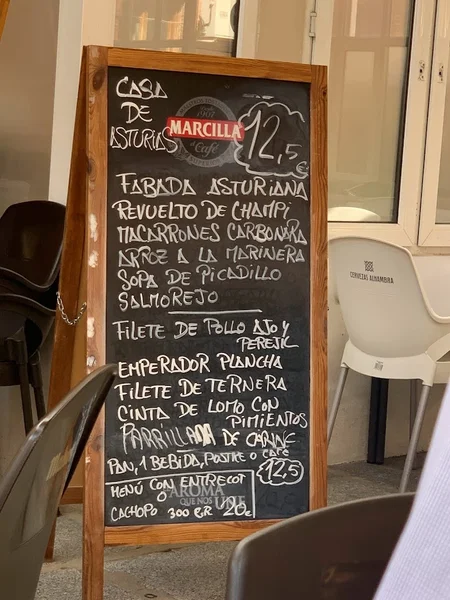 CASA
DE
ASTURIAS
MARCILLA
Café
12,5€
FABADA ASTURIANA
REVUELTO DE CHAMPI
MACARRONES CARBONARA
ARROZ A LA MARINERA
SOPA DE PICADILLO
SALMOREJO
FILETE DE POLLO AJO Y
PEREJIL
EMPERADOR PLANCHA
FILETE DE TERNERA
CINTA DE LOMO CON
PIMIENTOS
PARRILLADA DE CARNE
PAN, 1 BEBIDA, POSTRE O CAFE
12,5
MENÚ CON ENTRECOT
O
CACHOPO 300 GR 20€
AROMA
QUE NOS UNE
CERVEZAS ALHAMBRA